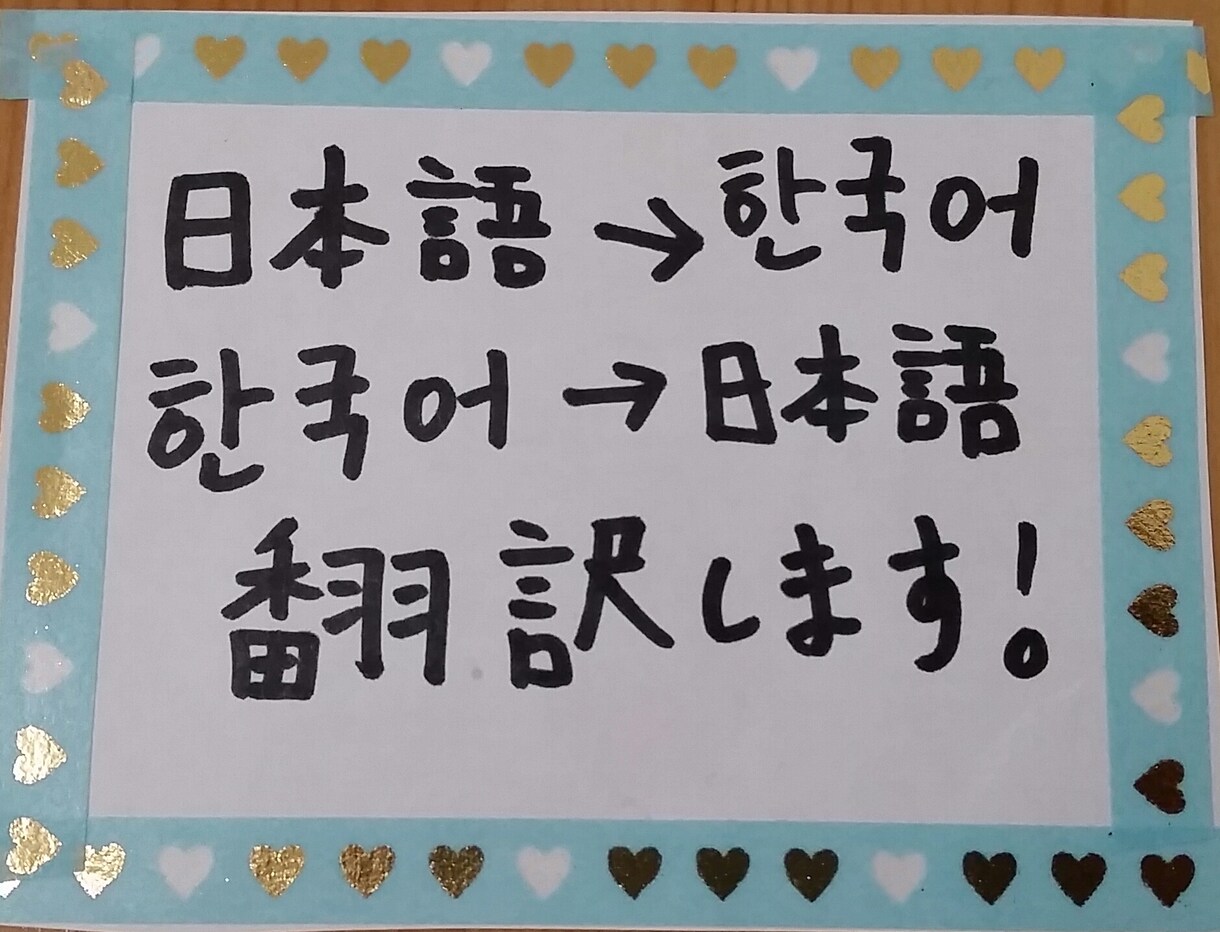 日本語→한국어
한국어→日本語
翻訳します!